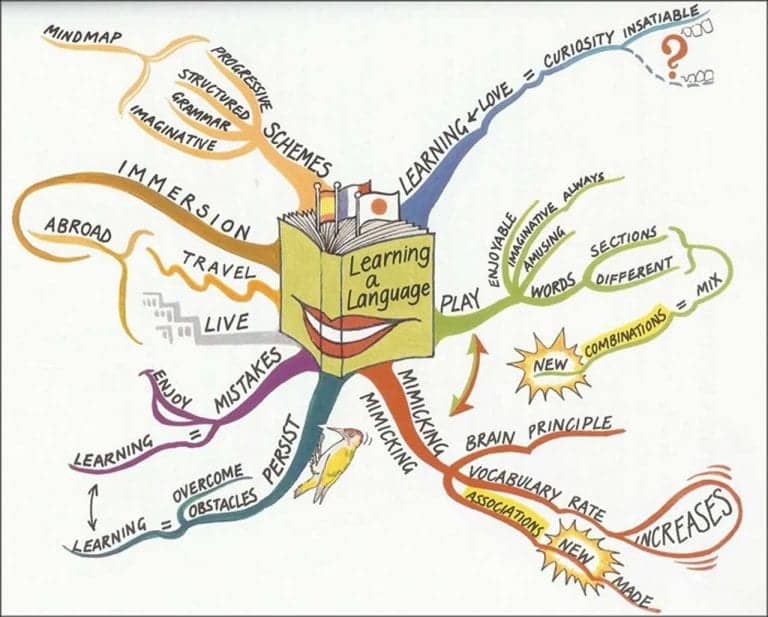 Learning
a
Language
LEARNING LOVE = CURIOSITY INSATIABLE
?
PLAY
ENJOYABLE
IMAGINATIVE ALWAYS
AMUSING
WORDS
SECTIONS
DIFFERENT
= MIX
COMBINATIONS
NEW
MIMICKING
MIMICKING
BRAIN PRINCIPLE
VOCABULARY RATE
INCREASES
ASSOCIATIONS
NEW
MADE
PERSIST
OVERCOME
OBSTACLES
LEARNING =
MISTAKES
ENJOY
LEARNING =
LIVE
TRAVEL
IMMERSION
ABROAD
SCHEMES
PROGRESSIVE
STRUCTURED
GRAMMAR
IMAGINATIVE
MINDMAP